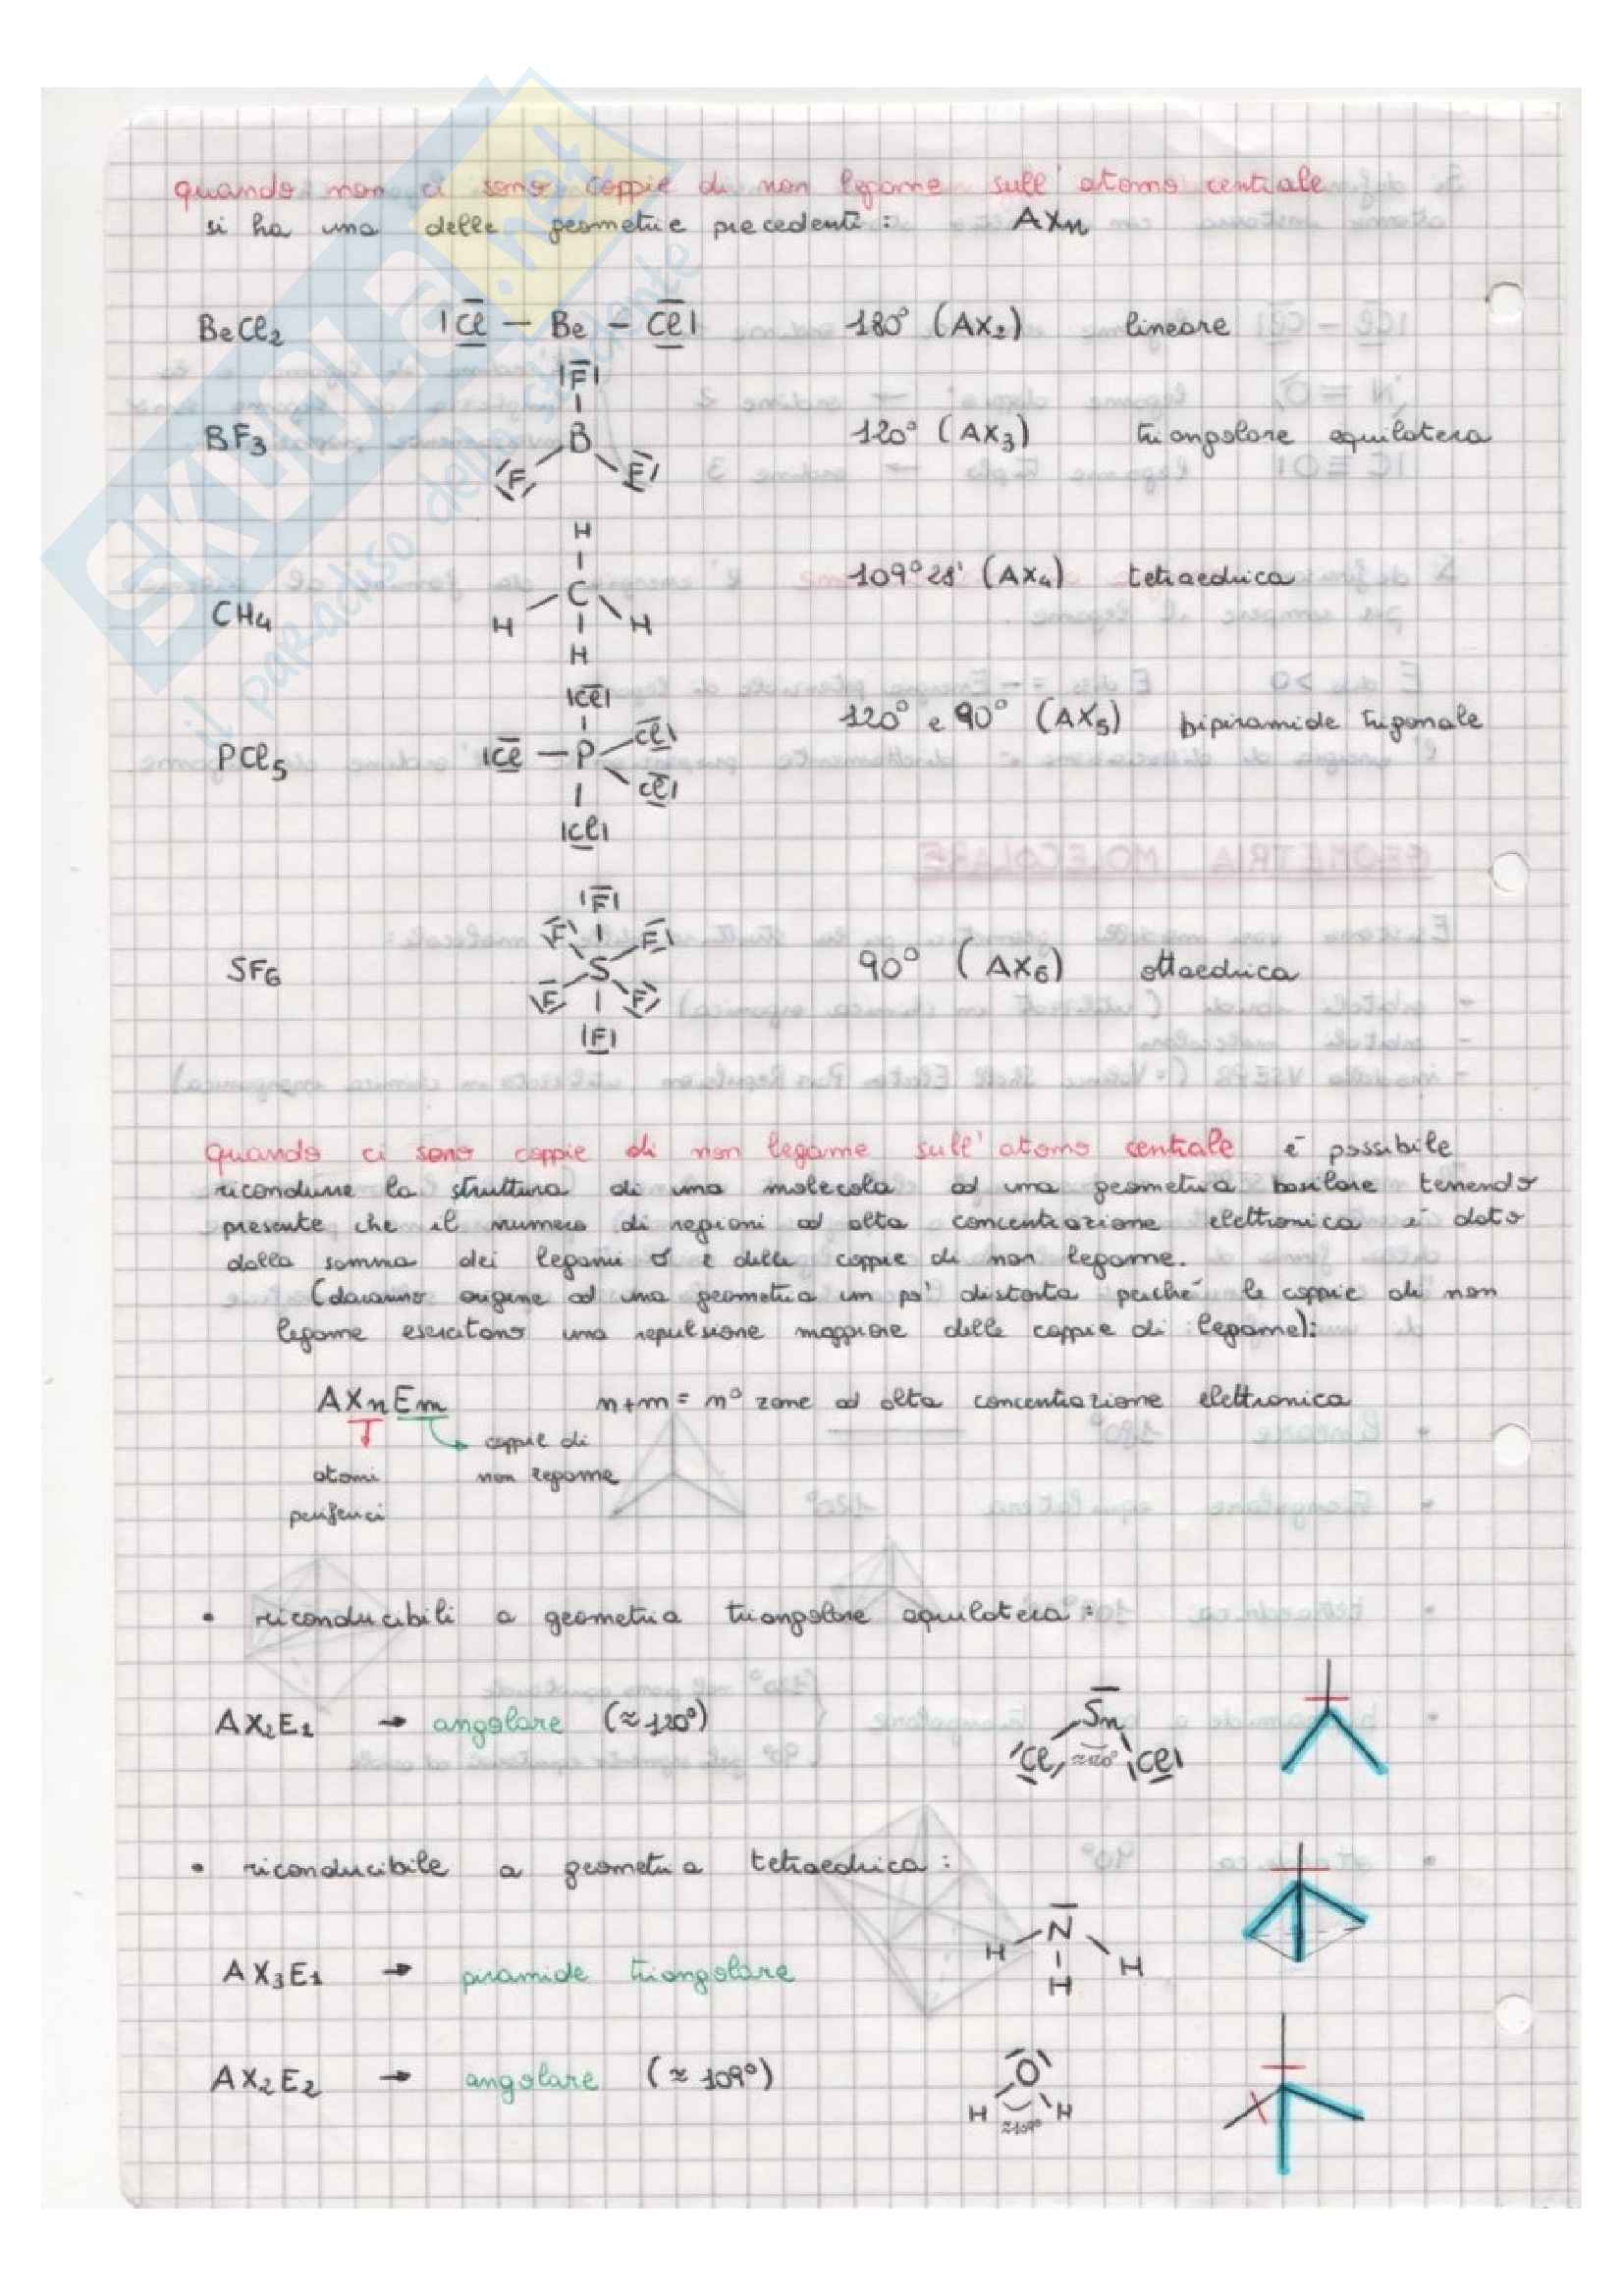 quando non ci sono coppie di non legame sull'atomo centrale
si ha una delle geometrie precedenti: AXn
BeCl2 |Cl — Be — Cl| 180° (AX2) lineare
|F|
BF3 B 120° (AX3) triangolare equilatera
F F
H
C 109°28' (AX4) tetraedrica
CH4 H H
H
|Cl|
120° e 90° (AX5) bipiramide trigonale
Cl|
PCl5 |Cl — P
Cl|
|Cl|
|F|
F F
SF6 S 90° (AX6) ottaedrica
F F
|F|
Quando ci sono coppie di non legame sull'atomo centrale è possibile
ricondurre la struttura di una molecola ad una geometria basilare tenendo
presente che il numero di regioni ad alta concentrazione elettronica è dato
dalla somma dei legami σ e delle coppie di non legame.
(daranno origine ad una geometria un po' distorta perché le coppie di non
legame esercitano una repulsione maggiore delle coppie di legame):
AXnEm n+m = n° zone ad alta concentrazione elettronica
coppie di
atomi non legame
periferici
• riconducibili a geometria triangolare equilatera:
AX2E1 → angolare (≈120°) Sn
Cl ≈120° Cl
• riconducibile a geometria tetraedrica:
N
H H
AX3E1 → piramide triangolare
H
AX2E2 → angolare (≈109°) O
H H
≈109°
SKUOLA.net
il paradiso dello studente